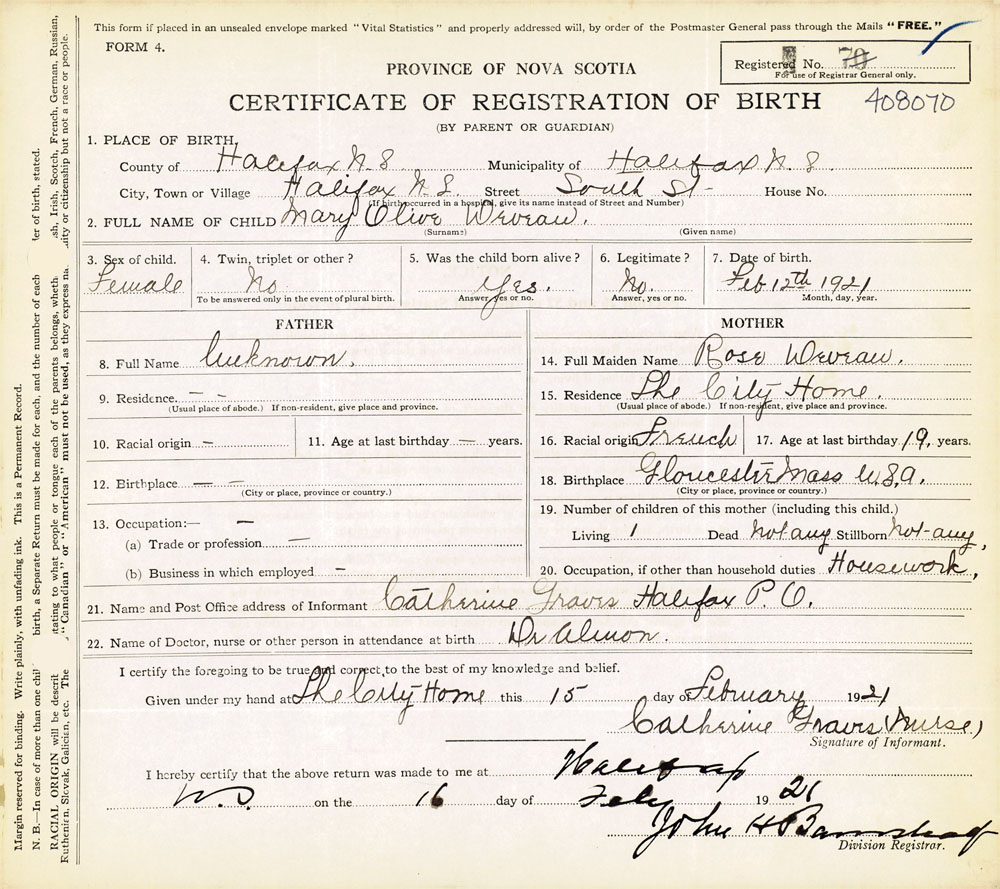 This form if placed in an unsealed envelope marked "Vital Statistics" and properly addressed will, by order of the Postmaster General pass through the Mails "FREE."
FORM 4.
Registered No. 70
For use of Registrar General only.
PROVINCE OF NOVA SCOTIA
CERTIFICATE OF REGISTRATION OF BIRTH 408070
(BY PARENT OR GUARDIAN)
1. PLACE OF BIRTH,
County of Halifax N.S Municipality of Halifax N.S
City, Town or Village Halifax N.S. Street South St- House No.
(If birth occurred in a hospital, give its name instead of Street and Number)
2. FULL NAME OF CHILD Mary Olive Deveau.
(Surname) (Given name)
3. Sex of child. 4. Twin, triplet or other ? 5. Was the child born alive ? 6. Legitimate ? 7. Date of birth.
Female No Yes. No. Feb 12th 1921
To be answered only in the event of plural birth. Answer, yes or no. Answer, yes or no. Month, day, year.
FATHER
8. Full Name Unknown.
9. Residence. — —
(Usual place of abode.) If non-resident, give place and province.
10. Racial origin — 11. Age at last birthday — years.
12. Birthplace — —
(City or place, province or country.)
13. Occupation:— —
(a) Trade or profession —
(b) Business in which employed —
MOTHER
14. Full Maiden Name Rose Deveau.
15. Residence The City Home.
(Usual place of abode.) If non-resident, give place and province.
16. Racial origin French 17. Age at last birthday 19. years.
18. Birthplace Gloucester Mass U.S.A.
(City or place, province or country.)
19. Number of children of this mother (including this child.)
Living 1 Dead not any Stillborn not-any,
20. Occupation, if other than household duties Housework.
21. Name and Post Office address of Informant Catherine Graves Halifax P.O.
22. Name of Doctor, nurse or other person in attendance at birth Dr Almon.
I certify the foregoing to be true and correct to the best of my knowledge and belief.
Given under my hand at The City Home this 15 day of February 1921
Catherine Graves (Nurse)
Signature of Informant.
I hereby certify that the above return was made to me at Halifax
N.S. on the 16 day of Feby 1921
John H Barnstead
Division Registrar.
Margin reserved for binding. Write plainly, with unfading ink. This is a Permanent Record.
N. B.—In case of more than one chil birth, a Separate Return must be made for each, and the number of each ler of birth, stated.
RACIAL ORIGIN will be descrit stating to what people or tongue each of the parents belongs, wheth sh, Irish, Scotch, French, German, Russian,
Ruthenian, Slovak, Galician, etc. The "Canadian" or "American" must not be used, as they express na ality or citizenship but not a race or people.